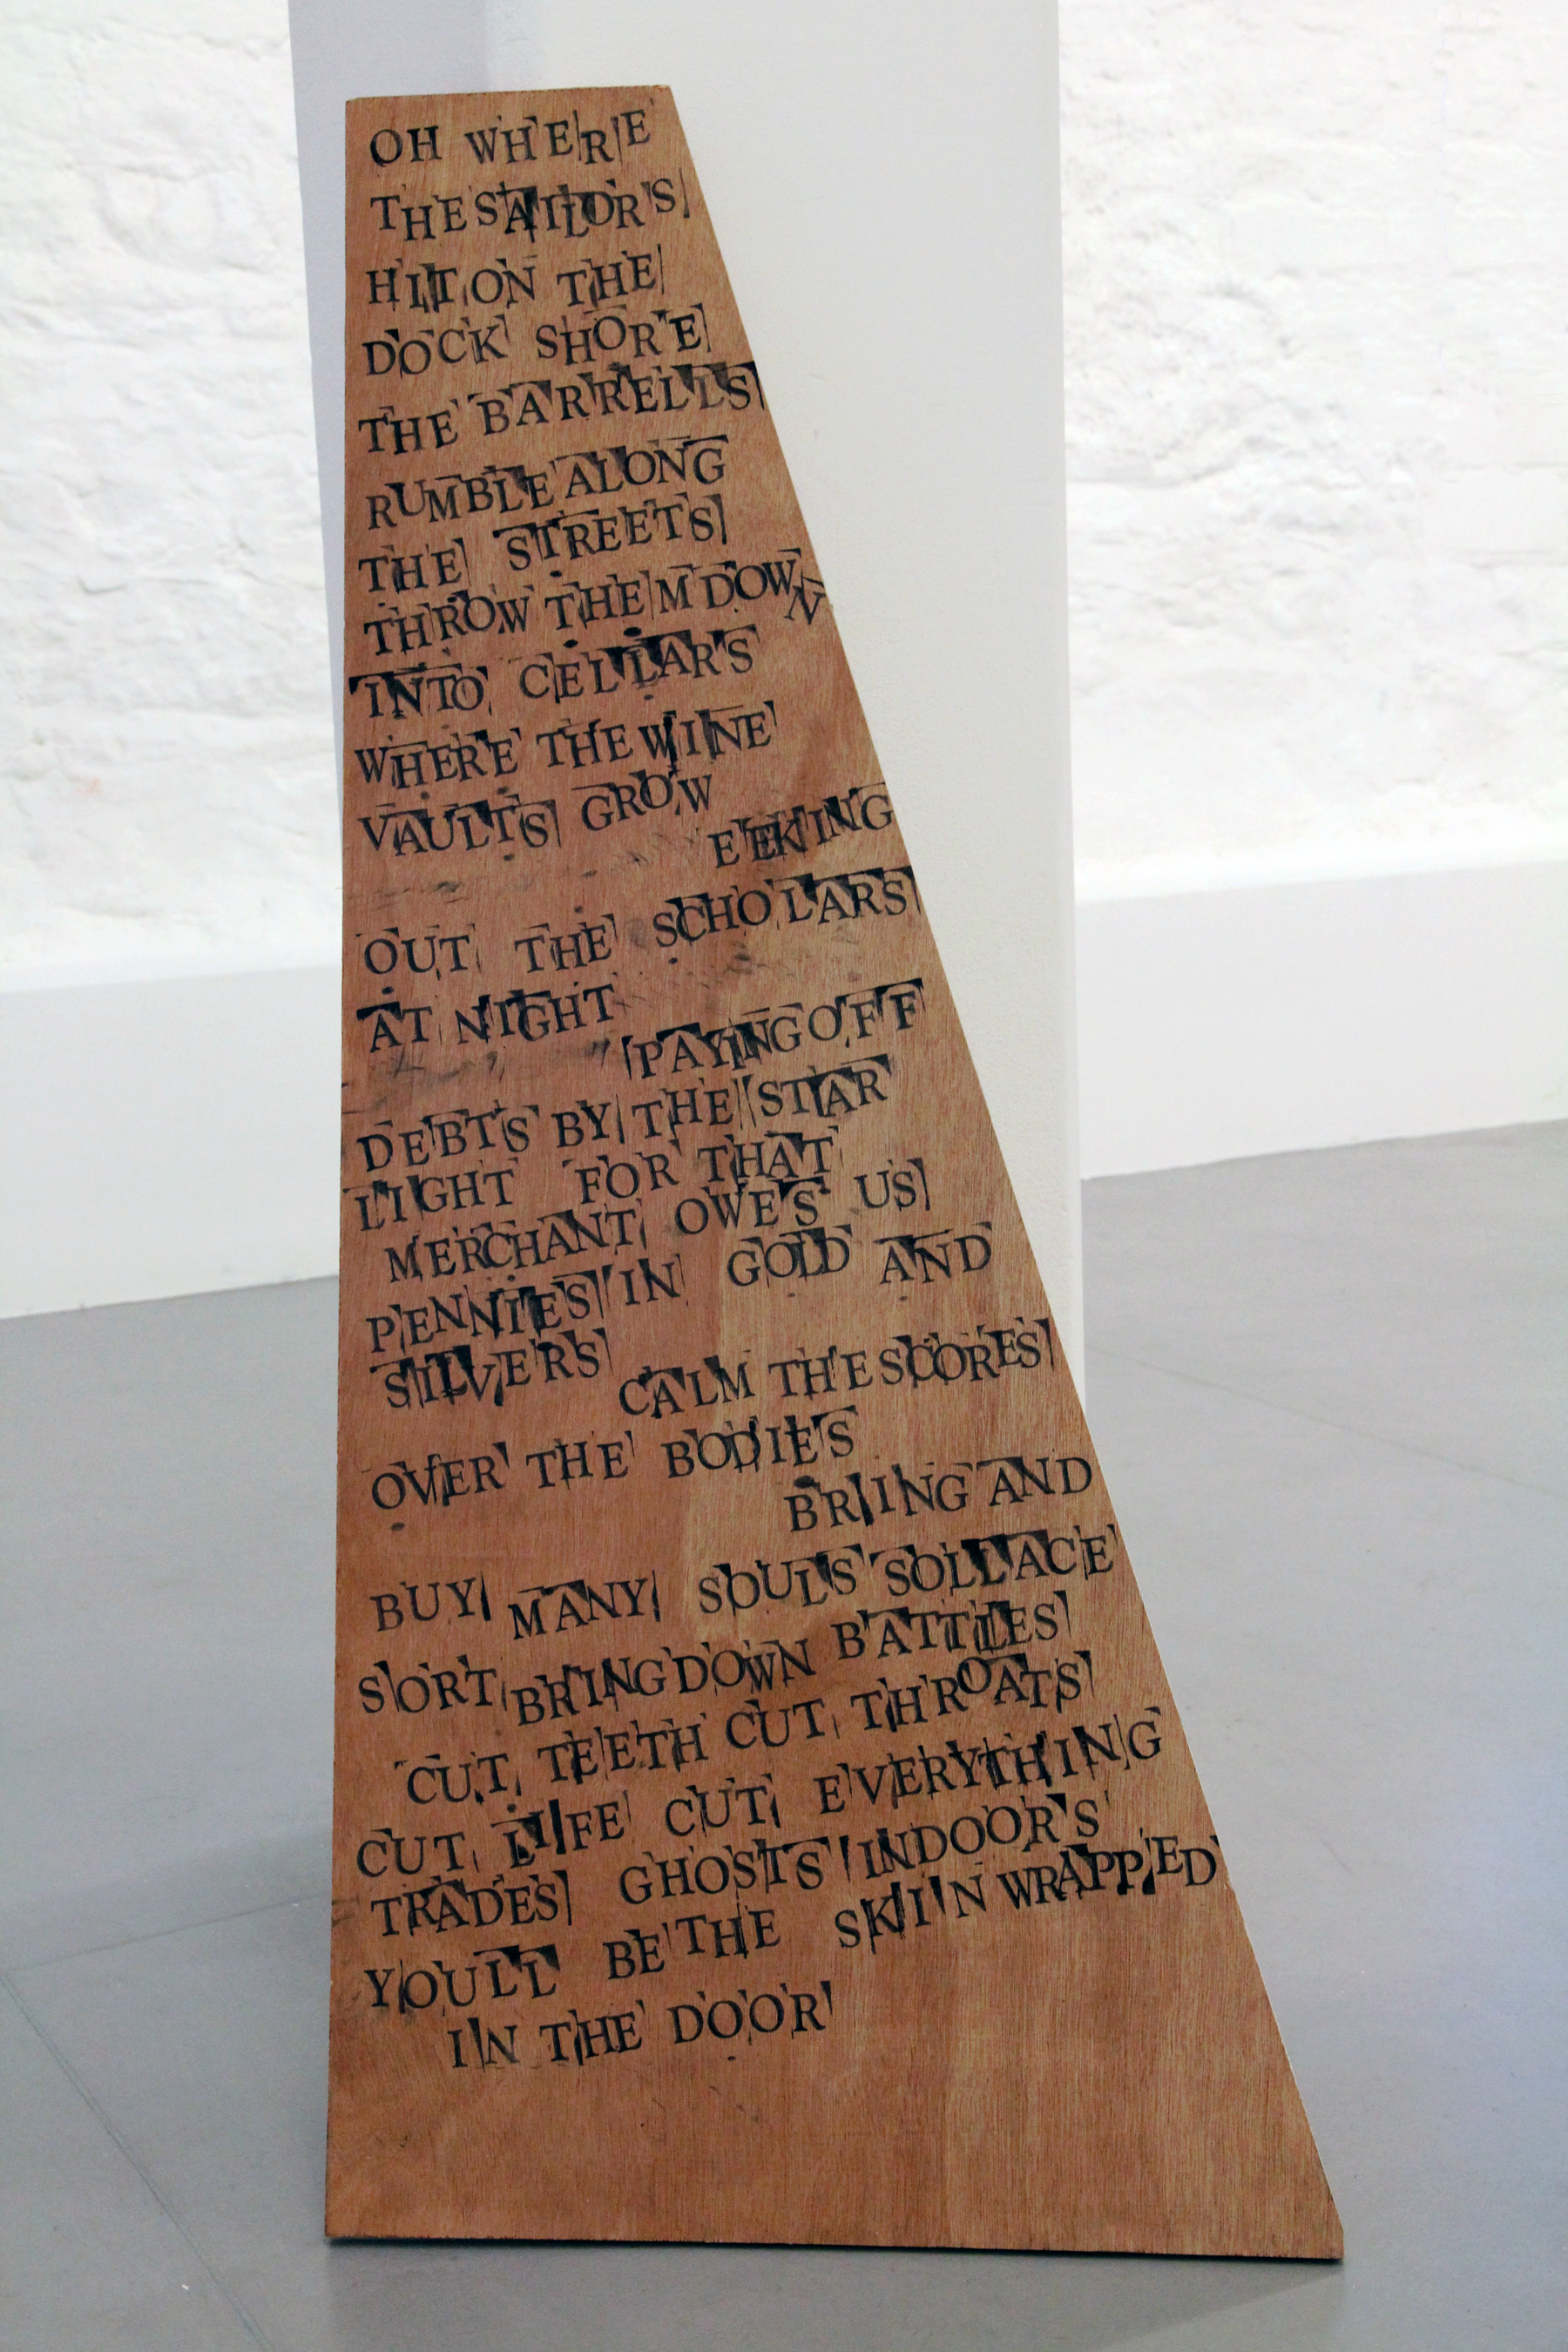 OH WHERE
THE SAILOR'S
HIT ON THE
DOCK SHORE
THE BARRELLS
RUMBLE ALONG
THE STREETS
THROW THEM DOWN
INTO CELLARS
WHERE THE WINE
VAULTS GROW
EEKING
OUT THE SCHOLARS
AT NIGHT
PAYING OFF
DEBTS BY THE STAR
LIGHT FOR THAT
MERCHANT OWES US
PENNIES IN GOLD AND
SILVERS
CALM THE SCORES
OVER THE BODIES
BRING AND
BUY MANY SOULS SOLLACE
SORT BRING DOWN BATTLES
CUT TEETH CUT THROATS
CUT LIFE CUT EVERYTHING
TRADES GHOSTS INDOORS
YOULL BE THE SKIN WRAPPED
IN THE DOOR